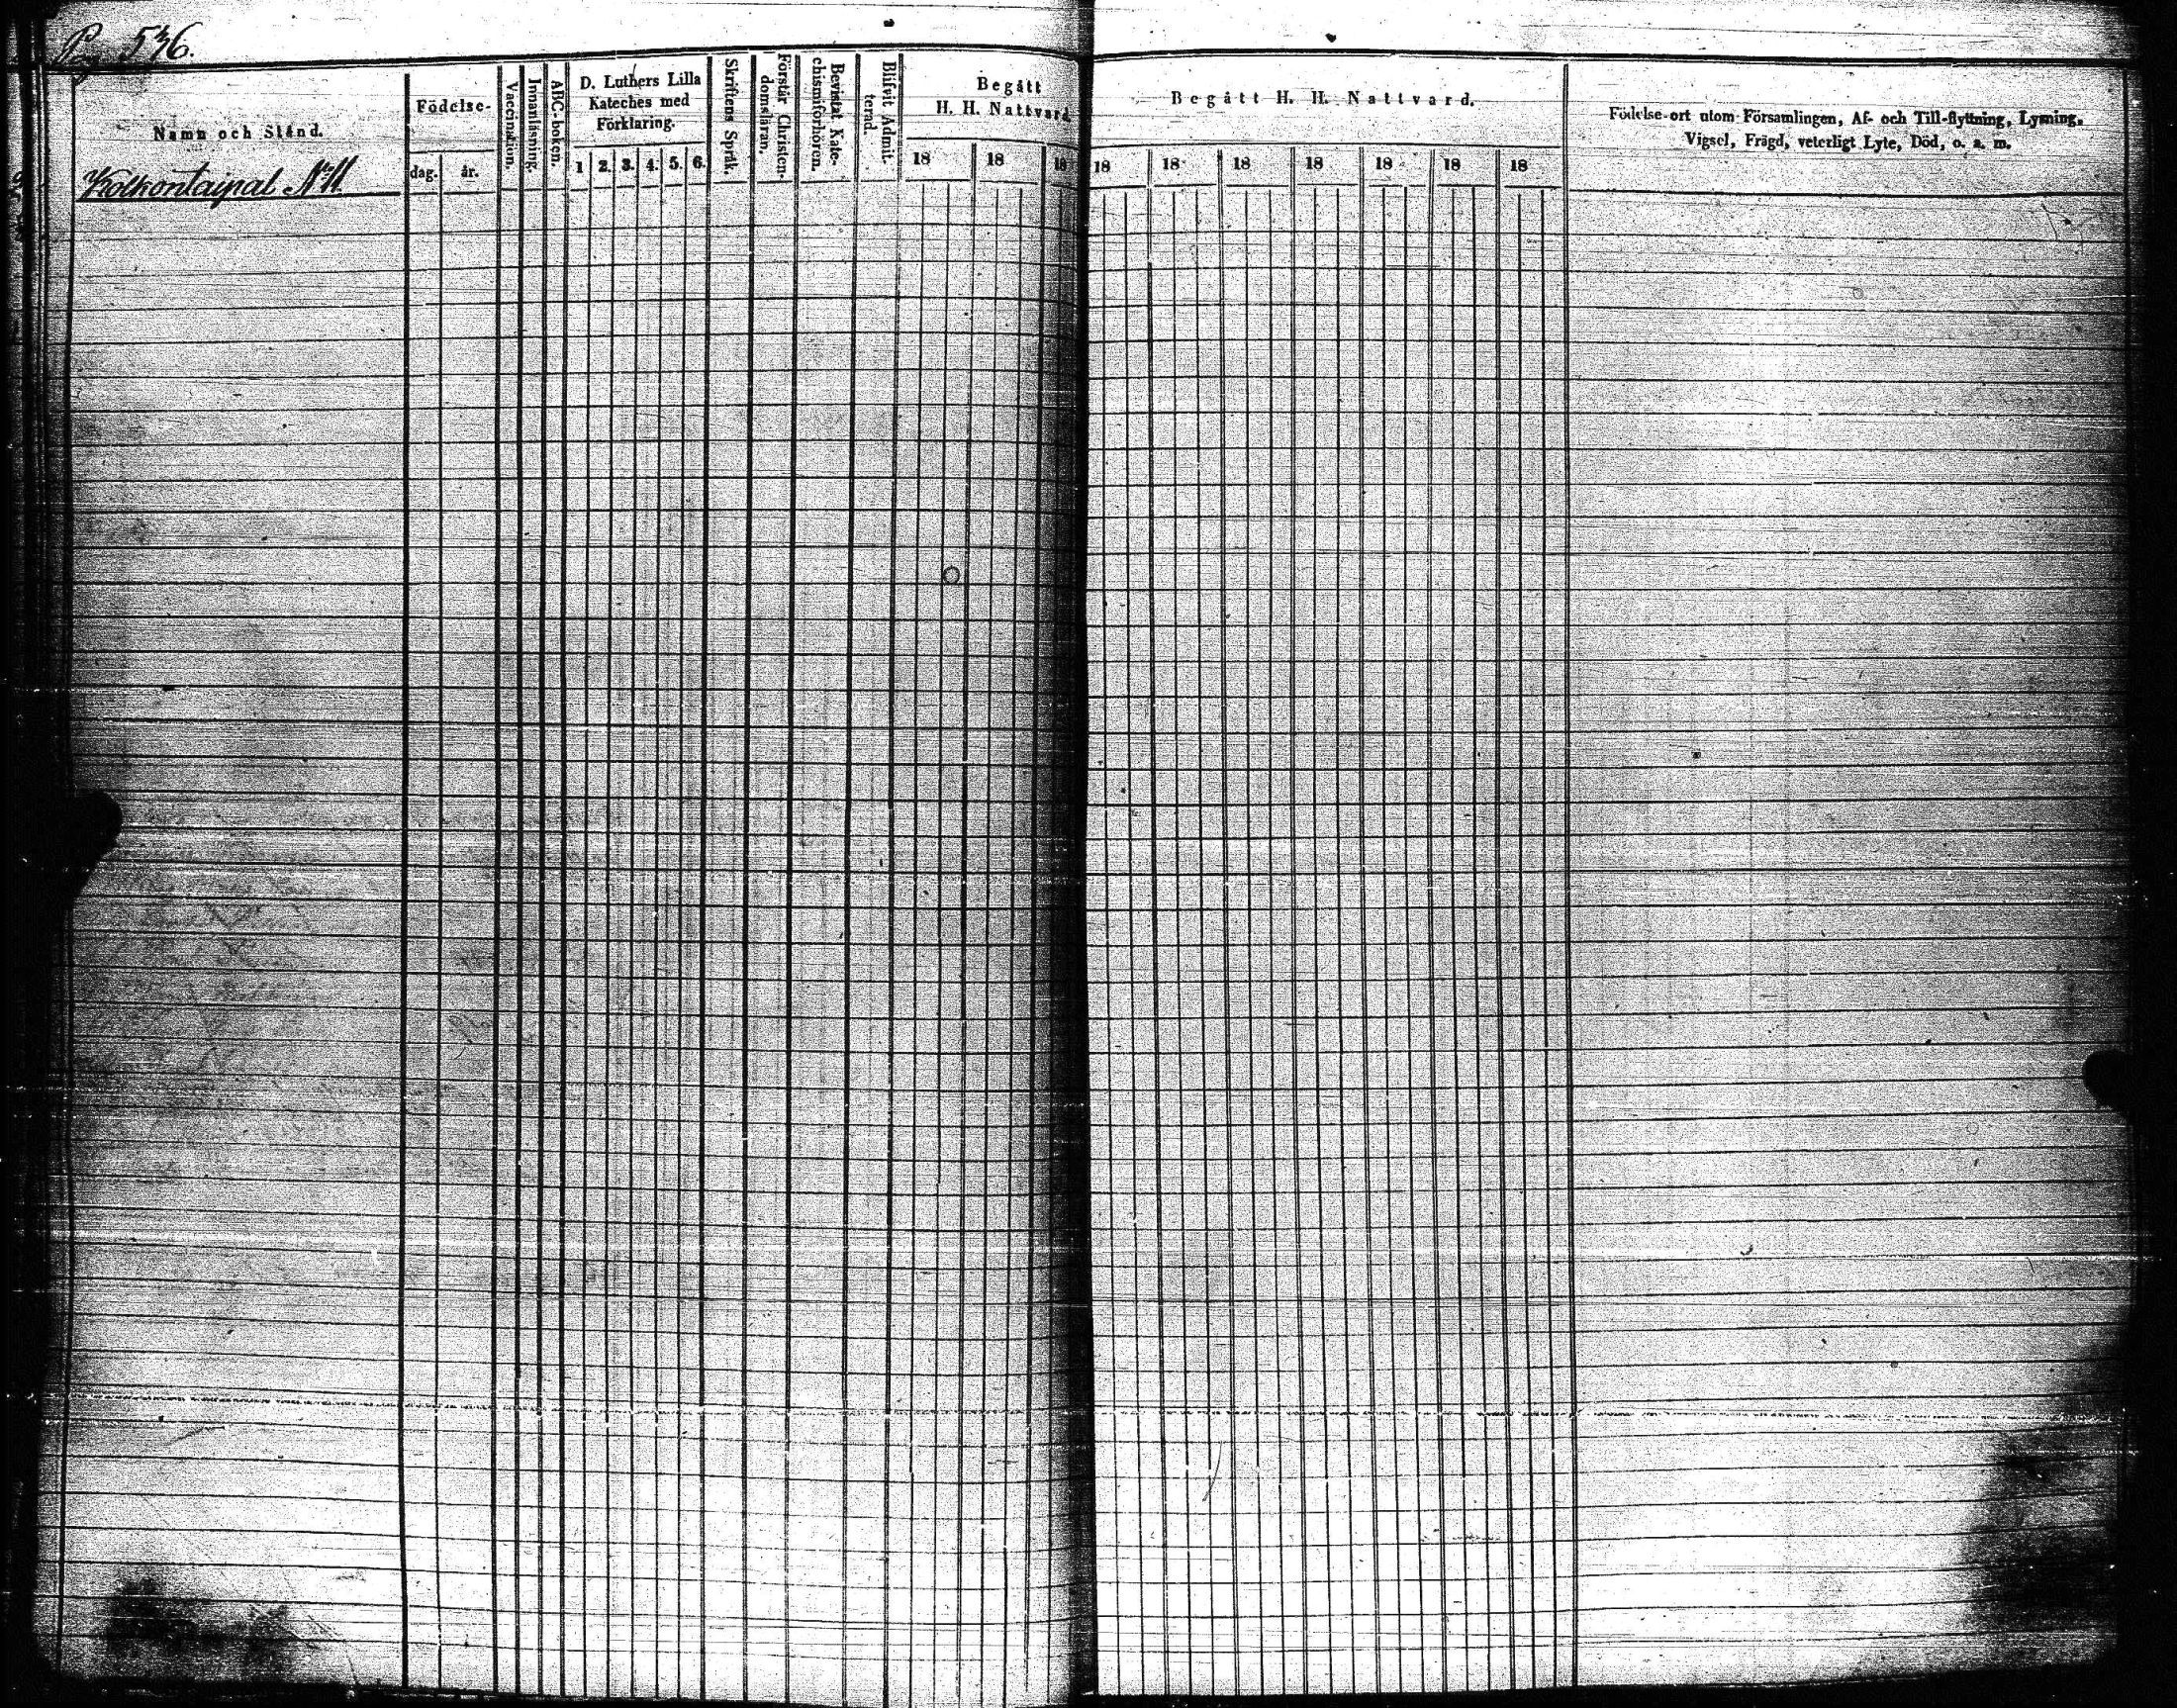 Pag. 536.
Namn och Stånd.
Födelse-
dag.
år.
Vaccination.
Innanläsning.
ABC-boken.
D. Luthers Lilla
Kateches med
Förklaring.
1 2. 3. 4. 5. 6.
Skriftens Språk.
Förstår Christen-
domsläran.
Bevistat Kate-
chismiförhören.
Blifvit Admit-
terad.
Begått
H. H. Nattvard
18 18 18
Begått H. H. Nattvard.
18 18 18 18 18 18 18
Födelse-ort utom Församlingen, Af- och Till-flyttning, Lysning,
Vigsel, Frägd, veterligt Lyte, Död, o. s. m.
Kolkontaipal No 11.